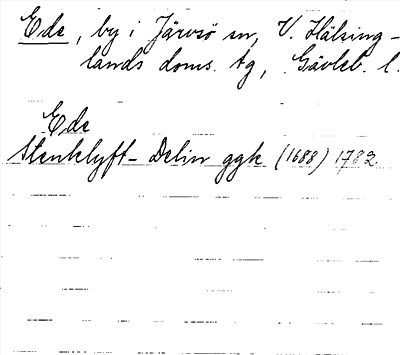 Ede, by i Järvsö sn, V. Hälsing-
lands doms. tg, Gävleb. l.
Ede
Stenklyft- Delin ggk (1688) 1782